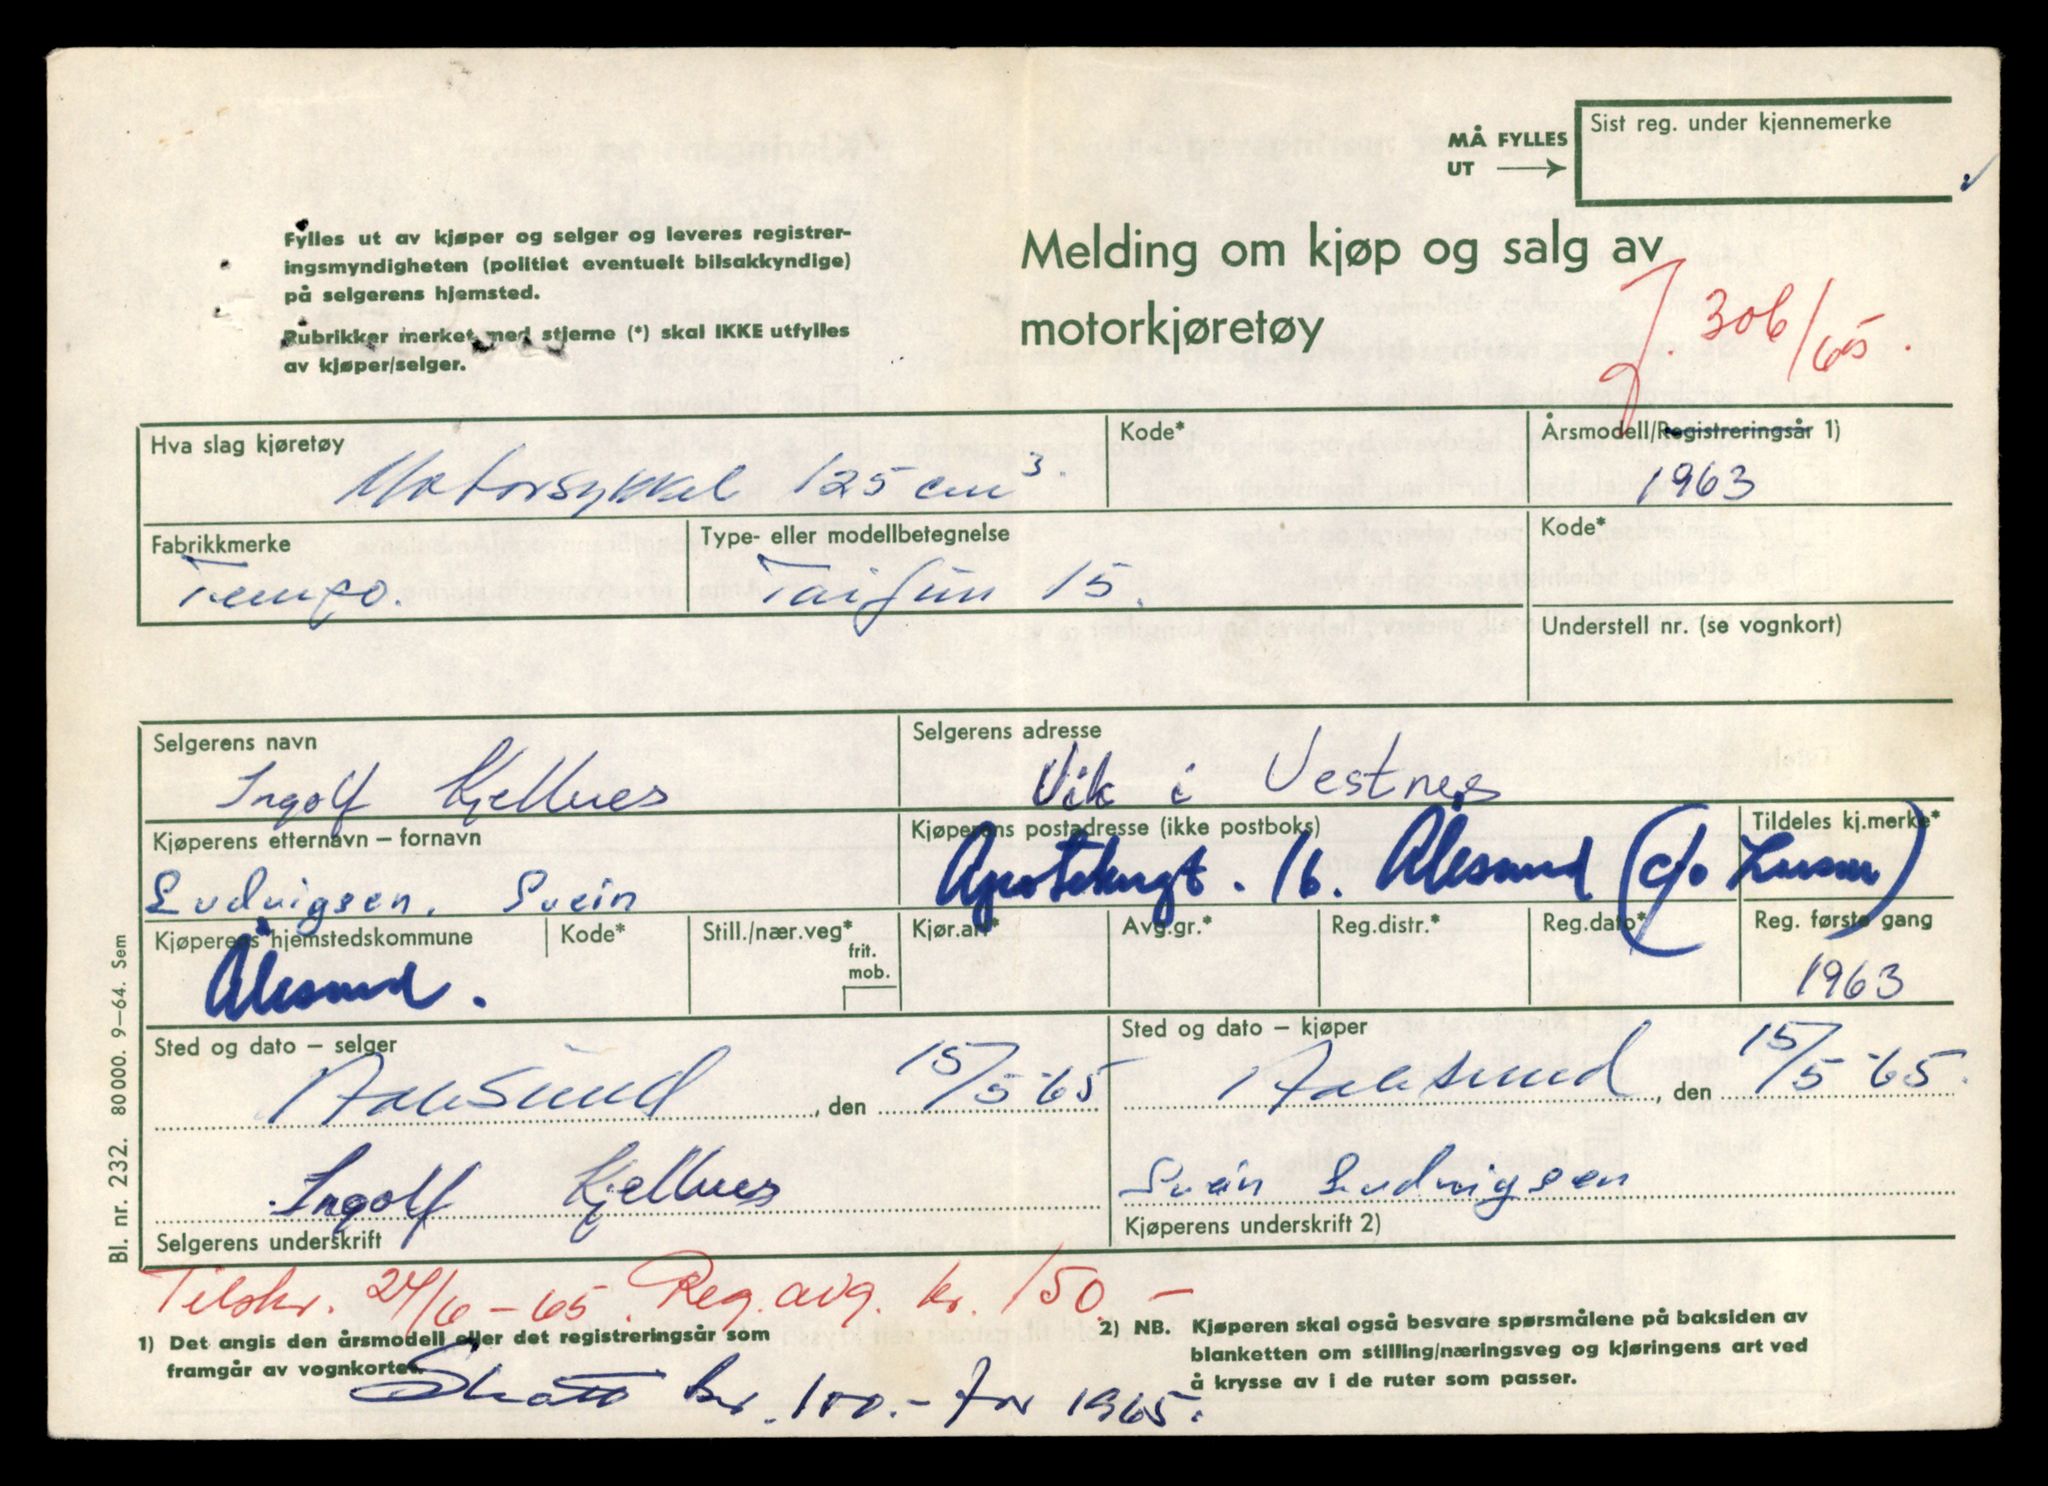 MÅ FYLLES UT
Sist reg. under kjennemerke
Fylles ut av kjøper og selger og leveres registrer-
ingsmyndigheten (politiet eventuelt bilsakkyndige)
på selgerens hjemsted.
Rubrikker merket med stjerne (*) skal IKKE utfylles
av kjøper/selger.
Melding om kjøp og salg av
motorkjøretøy
J. 306/65.
Hva slag kjøretøy
Motorsykkel 125 cm³.
Kode*
Årsmodell/Registreringsår 1)
1963
Fabrikkmerke
Tempo.
Type- eller modellbetegnelse
Taifun 15.
Kode*
Understell nr. (se vognkort)
Selgerens navn
Ingolf Kjellnes
Selgerens adresse
Vik i Vestnes
Kjøperens etternavn – fornavn
Ludvigsen, Svein
Kjøperens postadresse (ikke postboks)
Apotekergt. 16. Ålesund (c/o Larsen)
Tildeles kj.merke*
Kjøperens hjemstedskommune
Ålesund.
Kode*
Still./nær.veg*
frit.
mob.
Kjør.art*
Avg.gr.*
Reg.distr.*
Reg.dato*
Reg. første gang
1963
Sted og dato – selger
Aalesund, den 15/5-65
Sted og dato – kjøper
Aalesund, den 15/5-65.
Ingolf Kjellnes
Selgerens underskrift
Svein Ludvigsen
Kjøperens underskrift 2)
Bl. nr. 232. 80000. 9–64. Sem
Tilskr. 24/6-65. Reg.avg. kr. 150.-
1) Det angis den årsmodell eller det registreringsår som
framgår av vognkortet.
2) NB. Kjøperen skal også besvare spørsmålene på baksiden av
blanketten om stilling/næringsveg og kjøringens art ved
å krysse av i de ruter som passer.
Skatt kr. 100.- for 1965.